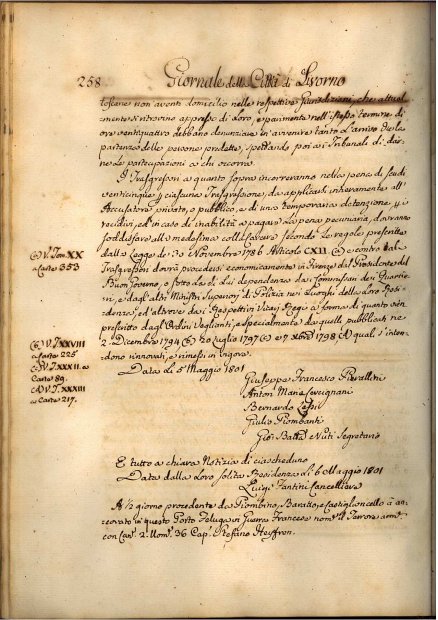 258
Giornale della Città di Livorno
toscane non aventi domicilio nelle respettive Giurisdizioni, che attual
mente si trovino appresso di Loro, e parimente nell'istesso termine di
ore ventiquattro debbano denunziare in avvenire tanto L'arrivo che la
partenza delle persone predette, spettando poi ai Tribunali di dar
ne Le partecipazioni a chi occorre.
I Trasgressori a quanto sopra incorreranno nella pena di scudi
venticinque p ciascuna Trasgressione, da applicarsi interamente all'
Accusatore privato, o pubblico, e di una temporaria detenzione p i
recidivi, ed in caso di inabilità a pagare La pena pecuniaria, dovranno
soddisfare alla medesima colle secondo Le regole prescritte
dalla Legge de' 30 Novembre 1786 Articolo CXII (a) e contro dei
Trasgressori dovrà procedersi economicamente in Firenze dal Presidente del
Buon Governo, e sotto de di Lui dipendenza da Commissari dei Quartie
ri, e dagl'altri Ministri Superiori di Polizia nei Luoghi della Loro Resi
denza, ed altrove dai Respettivi Vicarj Regi a forma di quanto vien
prescritto dagl'Ordini Veglianti, e specialmente da quelli pubblicati ne
2. Dicembre 1794 (b) 20 luglio 1797 (c) e 7 1798 (d) qual s'inten
dono rinnovati, e rimessi in vigore.
(a) V. Tom. XX
a Carte 353
(b) V. T. XXVIII
a Carte 225
(c) V. T. XXXII. a
Carte 89.
(d) V. T. XXXIII
a Carte 217.
Data li 5 Maggio 1801
Giuseppe Francesco Pierallini
Anton Maria
Bernardo Lessi
Giulio Piombanti
Gio: Batta Nuti Segretario
E tutto a chiara Notizia di ciascheduno
Data dalla Loro solita Residenza li 6 Maggio 1801
Luigi Fantini Cancelliere
A ½ giorno procedente da Piombino, Baratto, e Castiglioncello è an
corato in questo Porto Feluga in Guerra Francese nom.ta Terrore arm.ta
con Can. 2. Uom. 36 Cap. Stefano